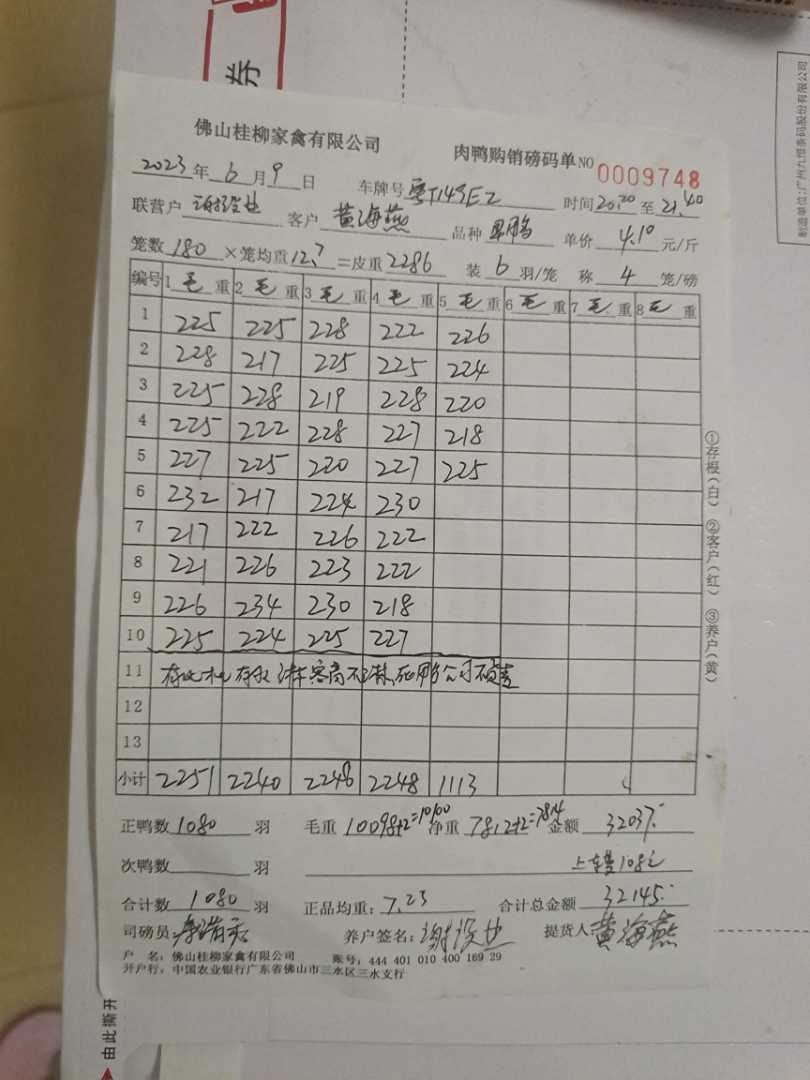 佛山桂柳家禽有限公司 肉鸭购销磅码单 NO 0009748
2023年6月9日 车牌号 粤T149EZ 时间20:20至21:40
联营户 客户 黄海燕 品种 单价 4.10 元/斤
笼数 180 ×笼均重 12.7 =皮重 2286 装 6 羽/笼 称 4 笼/磅
编号 1毛重 2毛重 3毛重 4毛重 5毛重 6毛重 7毛重 8毛重
1 225 225 228 222 226
2 228 217 225 225 224
3 225 228 219 228 220
4 225 222 228 227 218
5 227 225 220 227 225
6 232 217 224 230
7 217 222 226 222
8 221 226 223 222
9 226 234 230 218
10 225 224 225 227
11 客商不 死鸭公司不负责
12
13
小计 2251 2240 2248 2248 1113
正鸭数 1080 羽 毛重 10098+2=10100 净重 7812+2=7814 金额 32037.
次鸭数 羽 上车费108元
合计数 1080 羽 正品均重: 7.23 合计总金额 32145.
司磅员 养户签名: 提货人: 黄海燕
户 名: 佛山桂柳家禽有限公司 账号: 444 401 010 400 169 29
开户行: 中国农业银行广东省佛山市三水区三水支行
①存根(白) ②客户(红) ③养户(黄)
由此撕开
制造单位:广州九恒条码股份有限公司